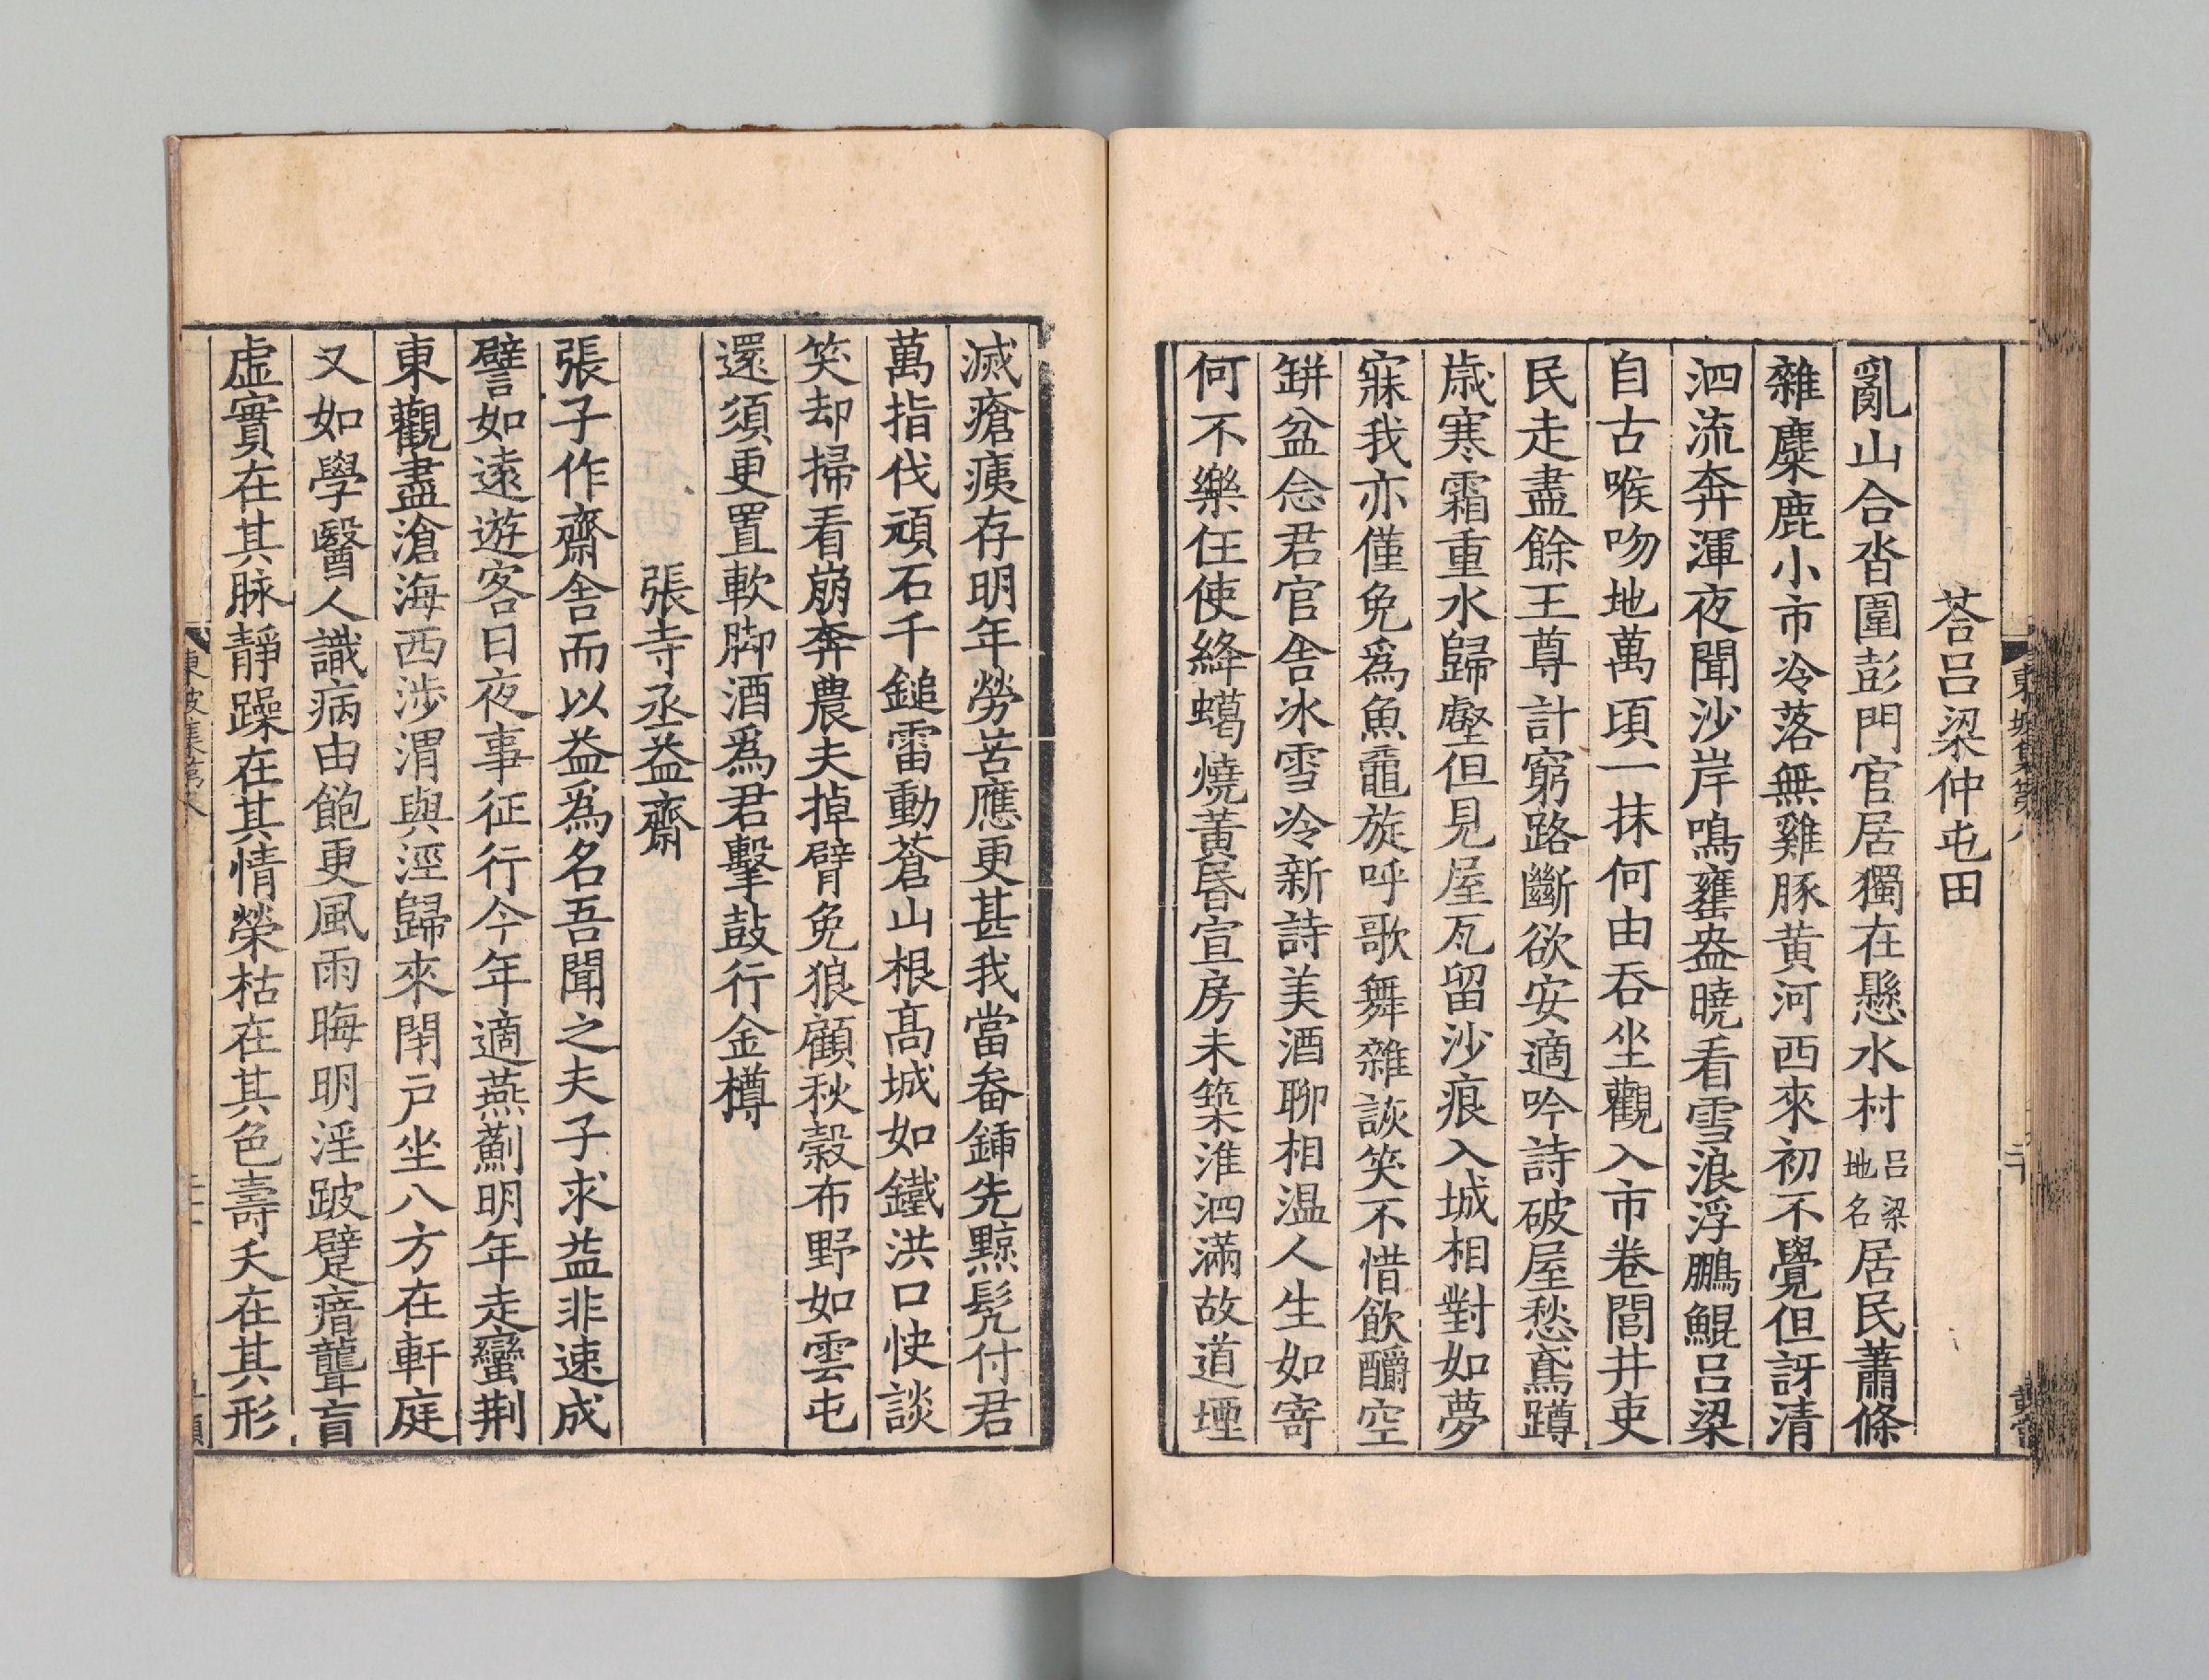 荅呂梁仲屯田
亂山合沓圍彭門官居獨在懸水村呂梁地名居民蕭條
雜麋鹿小市冷落無雞豚黄河西來初不覺但訝清
泗流奔渾夜聞沙岸鳴甕盎曉看雪浪浮鵬鯤呂梁
自古喉吻地萬頃一抹何由吞坐觀入市卷閭井吏
民走盡餘王尊計窮路斷欲安適吟詩破屋愁鳶蹲
歳寒霜重水歸壑但見屋瓦留沙痕入城相對如夢
寐我亦僅免爲魚黿旋呼歌舞雜詼笑不惜飲釂空
缾盆念君官舎冰雪冷新詩美酒聊相温人生如寄
何不樂任使絳蠟燒黄昬宣房未築淮泗滿故道堙
滅瘡痍存明年勞苦應更甚我當畚鍤先黥髠付君
萬指伐頑石千鎚雷動蒼山根髙城如鐵洪口快談
笑却掃看崩奔農夫掉臂免狼顧秋穀布野如雲屯
還須更置軟脚酒爲君擊鼓行金樽
張寺丞益齋
張子作齋舎而以益爲名吾聞之夫子求益非速成
譬如遠遊客日夜事征行今年適燕薊明年走蠻荆
東觀盡滄海西涉渭與涇歸來閉戸坐八方在軒庭
又如學醫人識病由飽更風雨晦明淫跛躄瘖聾盲
虚實在其脉靜躁在其情榮枯在其色壽夭在其形